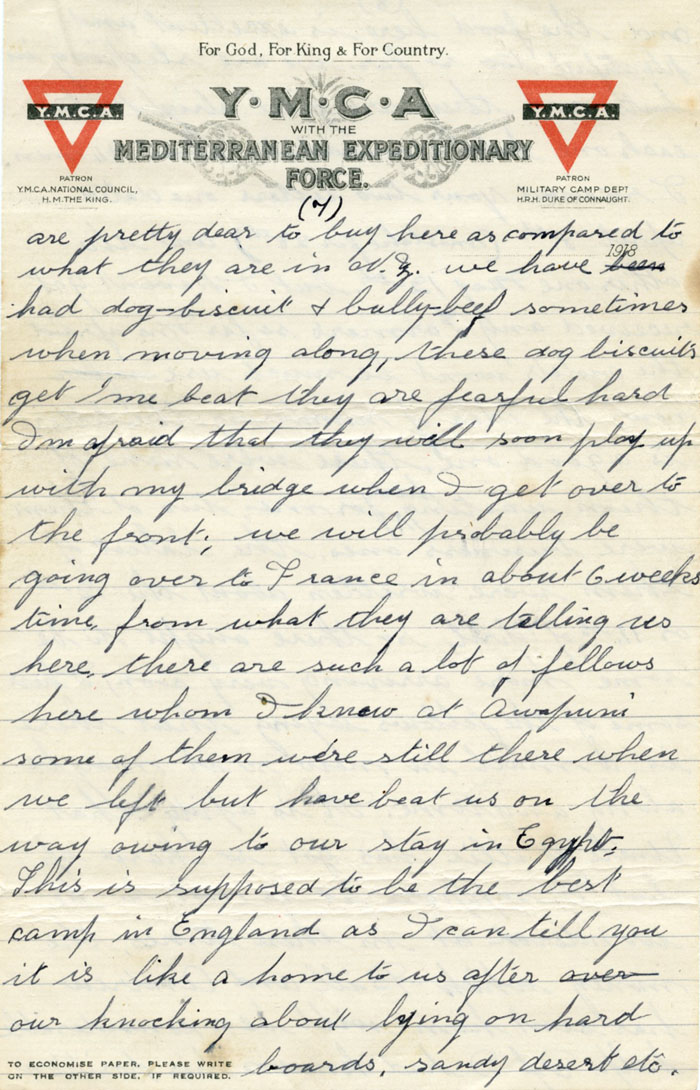 For God, For King & For Country.
Y.M.C.A.
Y·M·C·A
Y.M.C.A.
WITH THE
MEDITERRANEAN EXPEDITIONARY
FORCE.
PATRON
Y.M.C.A. NATIONAL COUNCIL,
H.M. THE KING.
PATRON
MILITARY CAMP DEPT
H.R.H. DUKE OF CONNAUGHT.
(7)
are pretty dear to buy here as compared to
1918
what they are in N.Z. we have been
had dog-biscuit & bully-beef sometimes
when moving along, these dog biscuits
get I'me beat they are fearful hard
I'm afraid that they will soon play up
with my bridge when I get over to
the front, we will probably be
going over to France in about 6 weeks
time, from what they are telling us
here, there are such a lot of fellows
here whom I knew at Awapuni
some of them we're still there when
we left but have beat us on the
way owing to our stay in Egypt.
This is supposed to be the best
camp in England as I can tell you
it is like a home to us after over
our knocking about lying on hard
boards, sandy desert etc.
TO ECONOMISE PAPER, PLEASE WRITE
ON THE OTHER SIDE, IF REQUIRED.